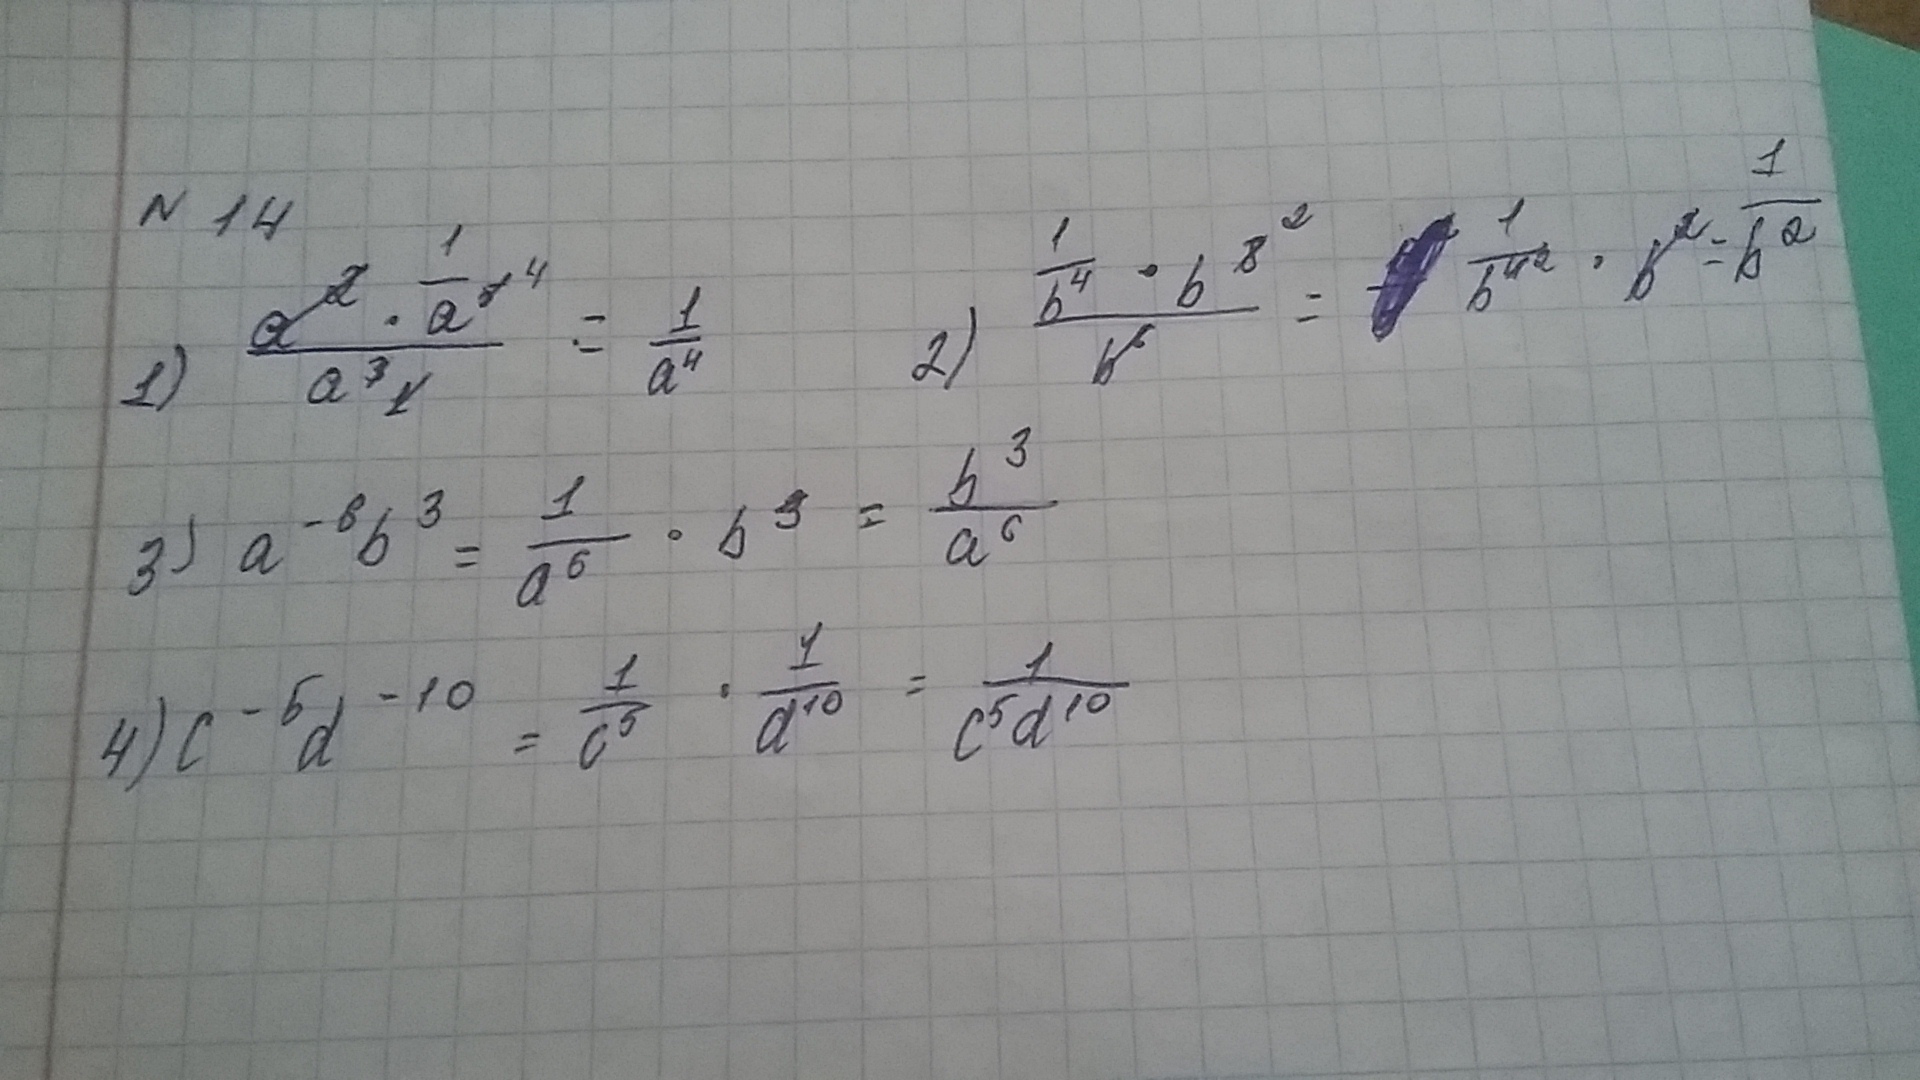 N 14
1) (a² · 1/a⁴) / a³ = 1/a⁴
2) (1/b⁴ · b⁸ ²) / b⁶ = 1/b⁴² · b² = 1/b²
3) a⁻⁶b³ = 1/a⁶ · b³ = b³/a⁶
4) c⁻⁵d⁻¹⁰ = 1/c⁵ · 1/d¹⁰ = 1/c⁵d¹⁰